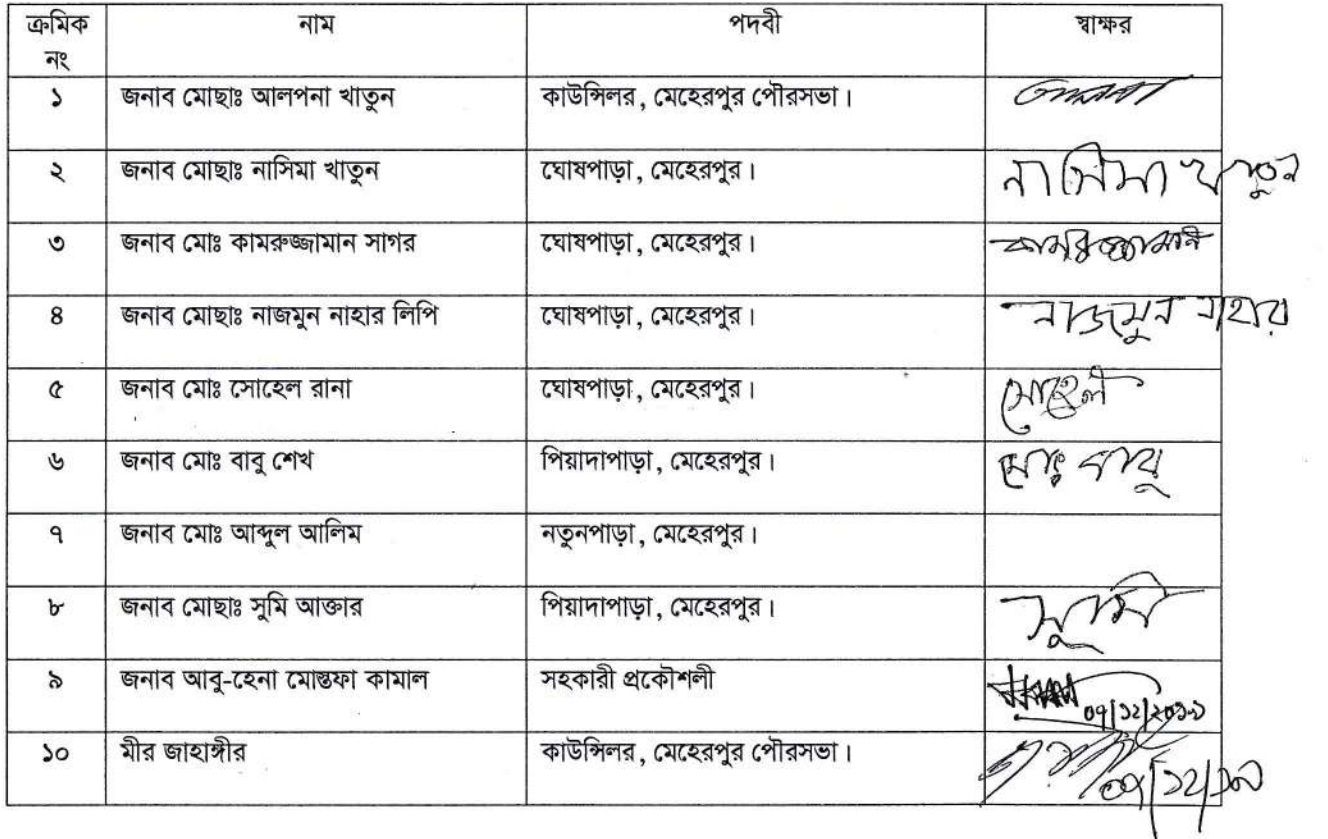 ক্রমিক নাম পদবী স্বাক্ষর
নং
১ জনাব মোছাঃ আলপনা খাতুন কাউন্সিলর, মেহেরপুর পৌরসভা।
২ জনাব মোছাঃ নাসিমা খাতুন ঘোষপাড়া, মেহেরপুর। নাসিমা খাতুন
৩ জনাব মোঃ কামরুজ্জামান সাগর ঘোষপাড়া, মেহেরপুর। কামরুজ্জামান
৪ জনাব মোছাঃ নাজমুন নাহার লিপি ঘোষপাড়া, মেহেরপুর। নাজমুন নাহার
৫ জনাব মোঃ সোহেল রানা ঘোষপাড়া, মেহেরপুর। সোহেল
৬ জনাব মোঃ বাবু শেখ পিয়াদাপাড়া, মেহেরপুর। মোঃ বাবু
৭ জনাব মোঃ আব্দুল আলিম নতুনপাড়া, মেহেরপুর।
৮ জনাব মোছাঃ সুমি আক্তার পিয়াদাপাড়া, মেহেরপুর। সুমি
৯ জনাব আবু-হেনা মোস্তফা কামাল সহকারী প্রকৌশলী
১০ মীর জাহাঙ্গীর কাউন্সিলর, মেহেরপুর পৌরসভা।